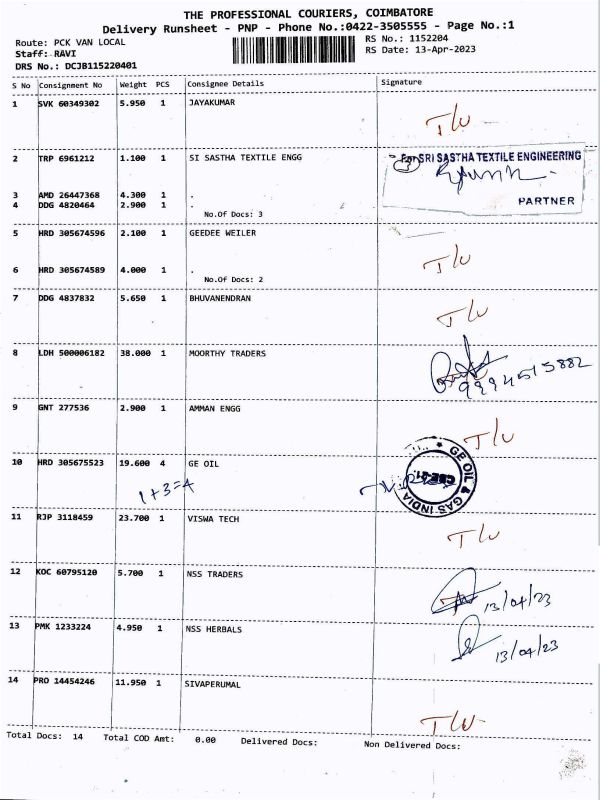 THE PROFESSIONAL COURIERS, COIMBATORE
Delivery Runsheet - PNP - Phone No.:0422-3505555 - Page No.:1
Route: PCK VAN LOCAL RS No.: 1152204
Staff: RAVI RS Date: 13-Apr-2023
DRS No.: DCJB115220401
S No Consignment No Weight PCS Consignee Details Signature
1 SVK 60349302 5.950 1 JAYAKUMAR
T/U
2 TRP 6961212 1.100 1 SI SASTHA TEXTILE ENGG For SRI SASTHA TEXTILE ENGINEERING
3
3 AMD 26447368 4.300 1 .
4 DDG 4820464 2.900 1 . PARTNER
No.Of Docs: 3
5 HRD 305674596 2.100 1 GEEDEE WEILER
T/U
6 HRD 305674589 4.000 1 .
No.Of Docs: 2
7 DDG 4837832 5.650 1 BHUVANENDRAN
T/U
8 LDH 500006182 38.000 1 MOORTHY TRADERS
9994515882
9 GNT 277536 2.900 1 AMMAN ENGG
T/U
10 HRD 305675523 19.600 4 GE OIL
GE OIL & GAS INDIA
1+3=4
11 RJP 3118459 23.700 1 VISWA TECH
T/U
12 KOC 60795120 5.700 1 NSS TRADERS
13/04/23
13 PMK 1233224 4.950 1 NSS HERBALS
13/04/23
14 PRO 14454246 11.950 1 SIVAPERUMAL
T/U
Total Docs: 14 Total COD Amt: 0.00 Delivered Docs: Non Delivered Docs: